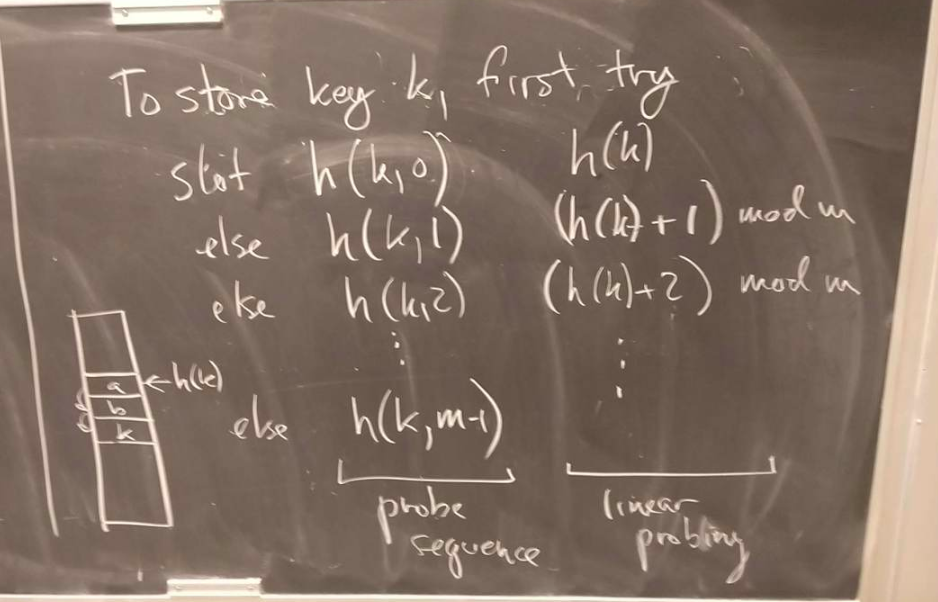 To store key k, first try
slot h(k,0) h(k)
else h(k,1) (h(k)+1) mod m
else h(k,2) (h(k)+2) mod m
⋮ ⋮
a ← h(k)
b
k
else h(k,m-1)
probe sequence
linear probing